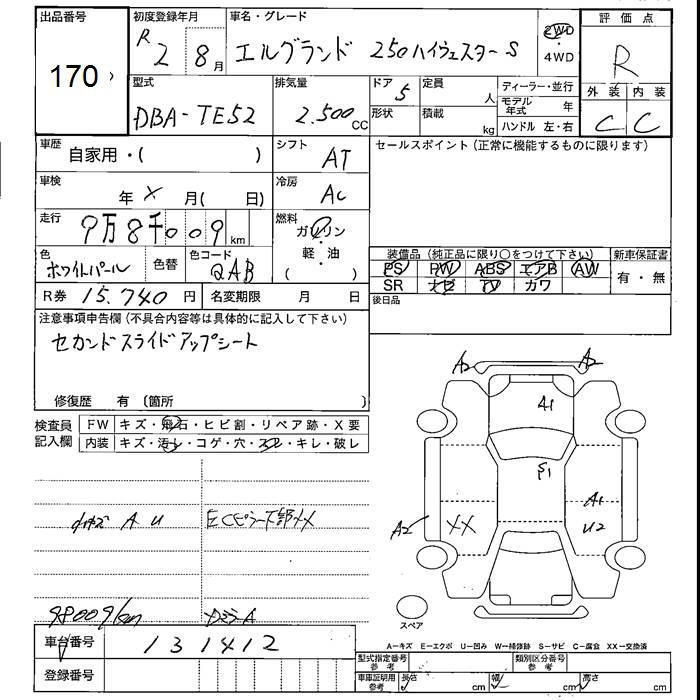 出品番号
170
初度登録年月
R 2 8月
車名・グレード
エルグランド 250ハイウェスターS
2WD
・
4WD
評価点
R
型式
DBA-TE52
排気量
2.500 CC
ドア 5
定員 人
形状
積載 kg
ディーラー・並行
モデル年式 年
ハンドル 左・右
外装 内装
C C
車歴
自家用・( )
シフト
AT
セールスポイント(正常に機能するものに限ります)
車検
年 X 月( 日)
冷房
AC
走行
9万8千009 km
燃料
ガソリン
・
軽・油
( )
色
ホワイトパール
色替
色コード
QAB
装備品(純正品に限り○をつけて下さい)
新車保証書
PS PW ABS エアB AW
SR ナビ TV カワ
有・無
R券 15.740 円
名変期限 月 日
後日品
注意事項申告欄(不具合内容等は具体的に記入して下さい)
セカンドスライドアップシート
修復歴 有〔箇所 〕
検査員
記入欄
FW キズ・飛石・ヒビ割・リペア跡・X要
内装 キズ・汚レ・コゲ・穴・スレ・キレ・破レ
A2 A2
A1
S1
A1
U2
A2
XX
小キズ A U
左Cピラー下部XX
98009km
DミラーA
スペア
車台番号 131412
A―キズ E―エクボ U―凹み W―補修跡 S―サビ C―腐食 XX―交換済
登録番号
型式指定番号
参考
類別区分番号
参考
車庫証明用
参考
長さ cm 幅 cm 高さ cm